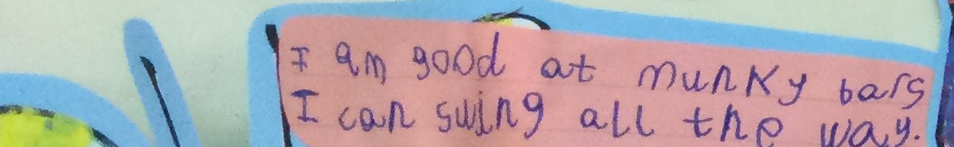 I am good at munky bars
I can swing all the way.